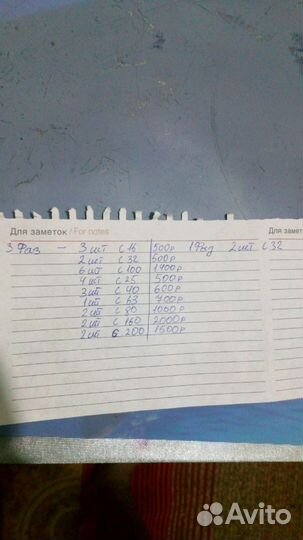 Для заметок / For notes
Для заметок
3 фаз - 3 шт С 16 500р 1 Фаз 2 шт С 32
2 шт С 32 500р
6 шт С 100 1400р
4 шт С 25 500р
3 шт С 40 600р
1 шт С 63 700р
2 шт С 80 1000р
2 шт С 160 2000р
2 шт С 200 1500р
Avito